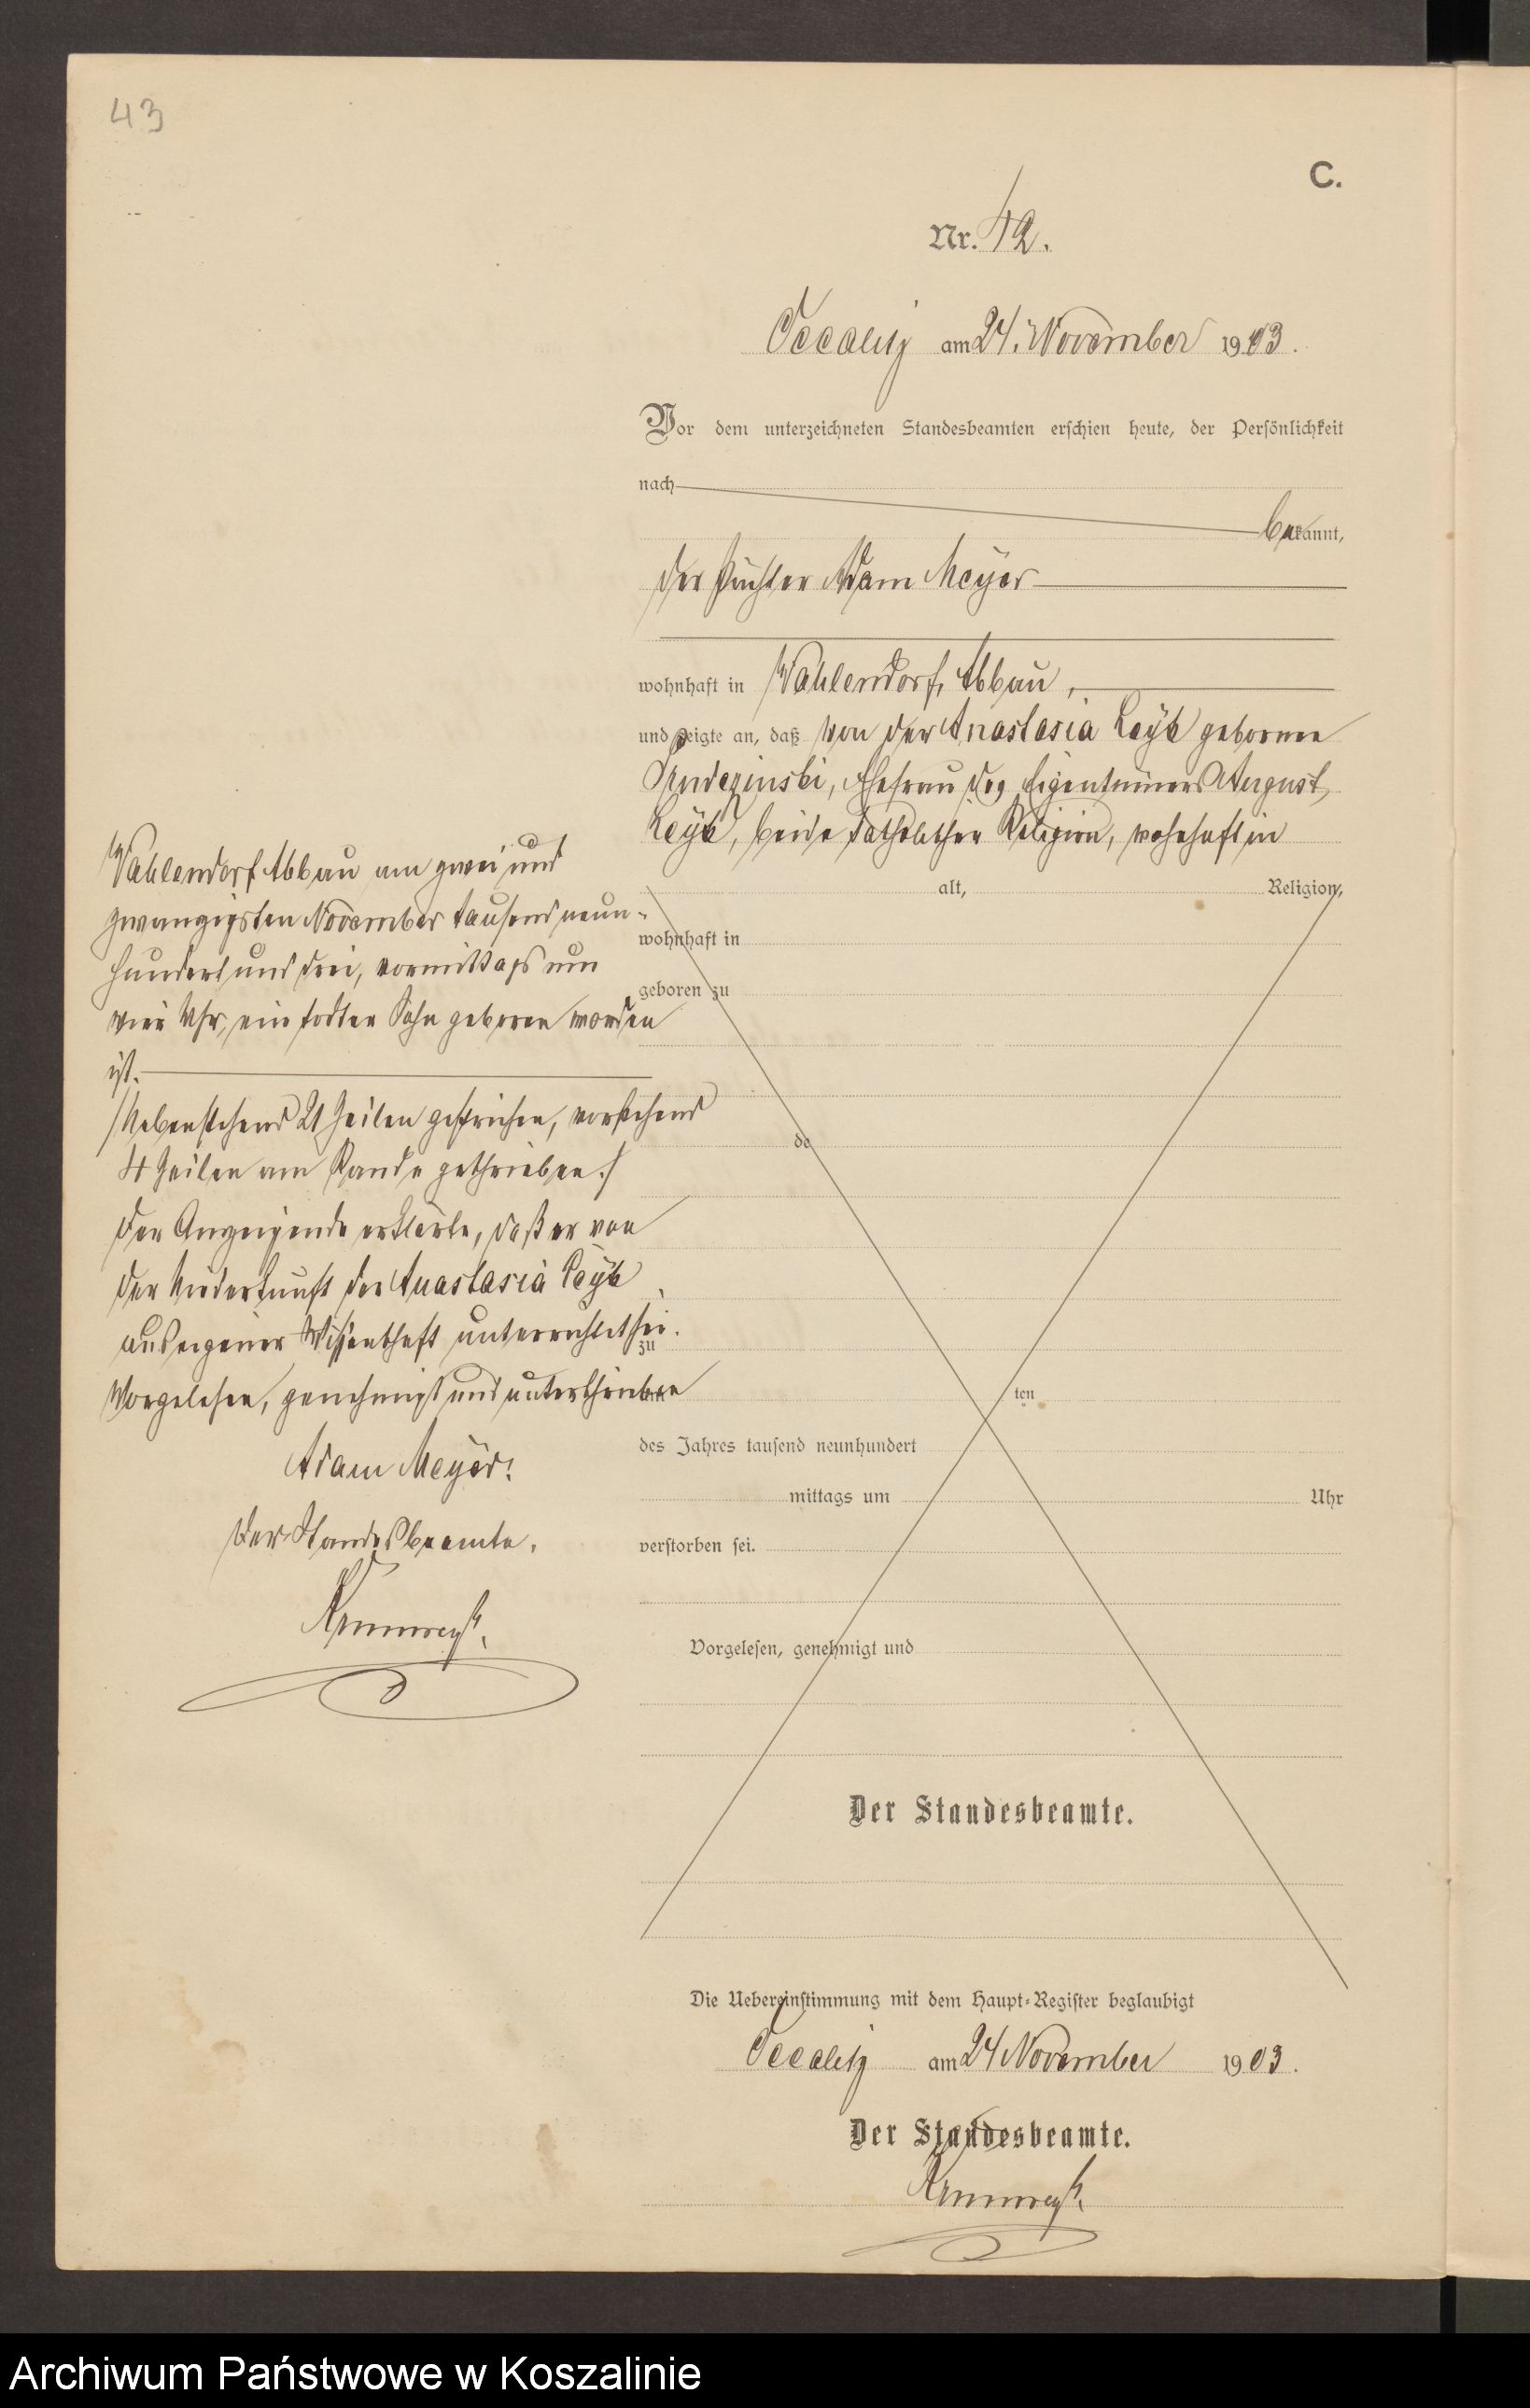 43
C.
Nr. 42.
am 24. November 1903.
Vor dem unterzeichneten Standesbeamten erschien heute, der Persönlichkeit
nach
bekannt,
der Pächter Adam Meyer
wohnhaft in Wahlendorf, Abbau,
und zeigte an, daß von der Anastasia Leyk geborenen
Ehefrau des Eigentümers August
Leyk, beide katholischer Religion, wohnhaft in
Wahlendorf Abbau am zwei und
zwanzigsten November tausend neun-
hundert und drei, vormittags um
vier Uhr, ein todter Sohn geboren worden
ist.
/Nebenstehend 21 Zeilen gestrichen, vorstehend
4 Zeilen am Rande geschrieben./
Der Anzeigende erklärte, daß er von
der Niederkunft der Anastasia Leyk
aus eigener Wissenschaft unterrichtet sei.
Vorgelesen, genehmigt und unterschrieben
Adam Meyer.
Der Standesbeamte.
alt, Religion,
wohnhaft in
geboren zu
de
zu
ten
des Jahres tausend neunhundert
mittags um Uhr
verstorben sei.
Vorgelesen, genehmigt und
Der Standesbeamte.
Die Uebereinstimmung mit dem Haupt-Register beglaubigt
am 24 November 1903.
Der Standesbeamte.
Archiwum Państwowe w Koszalinie